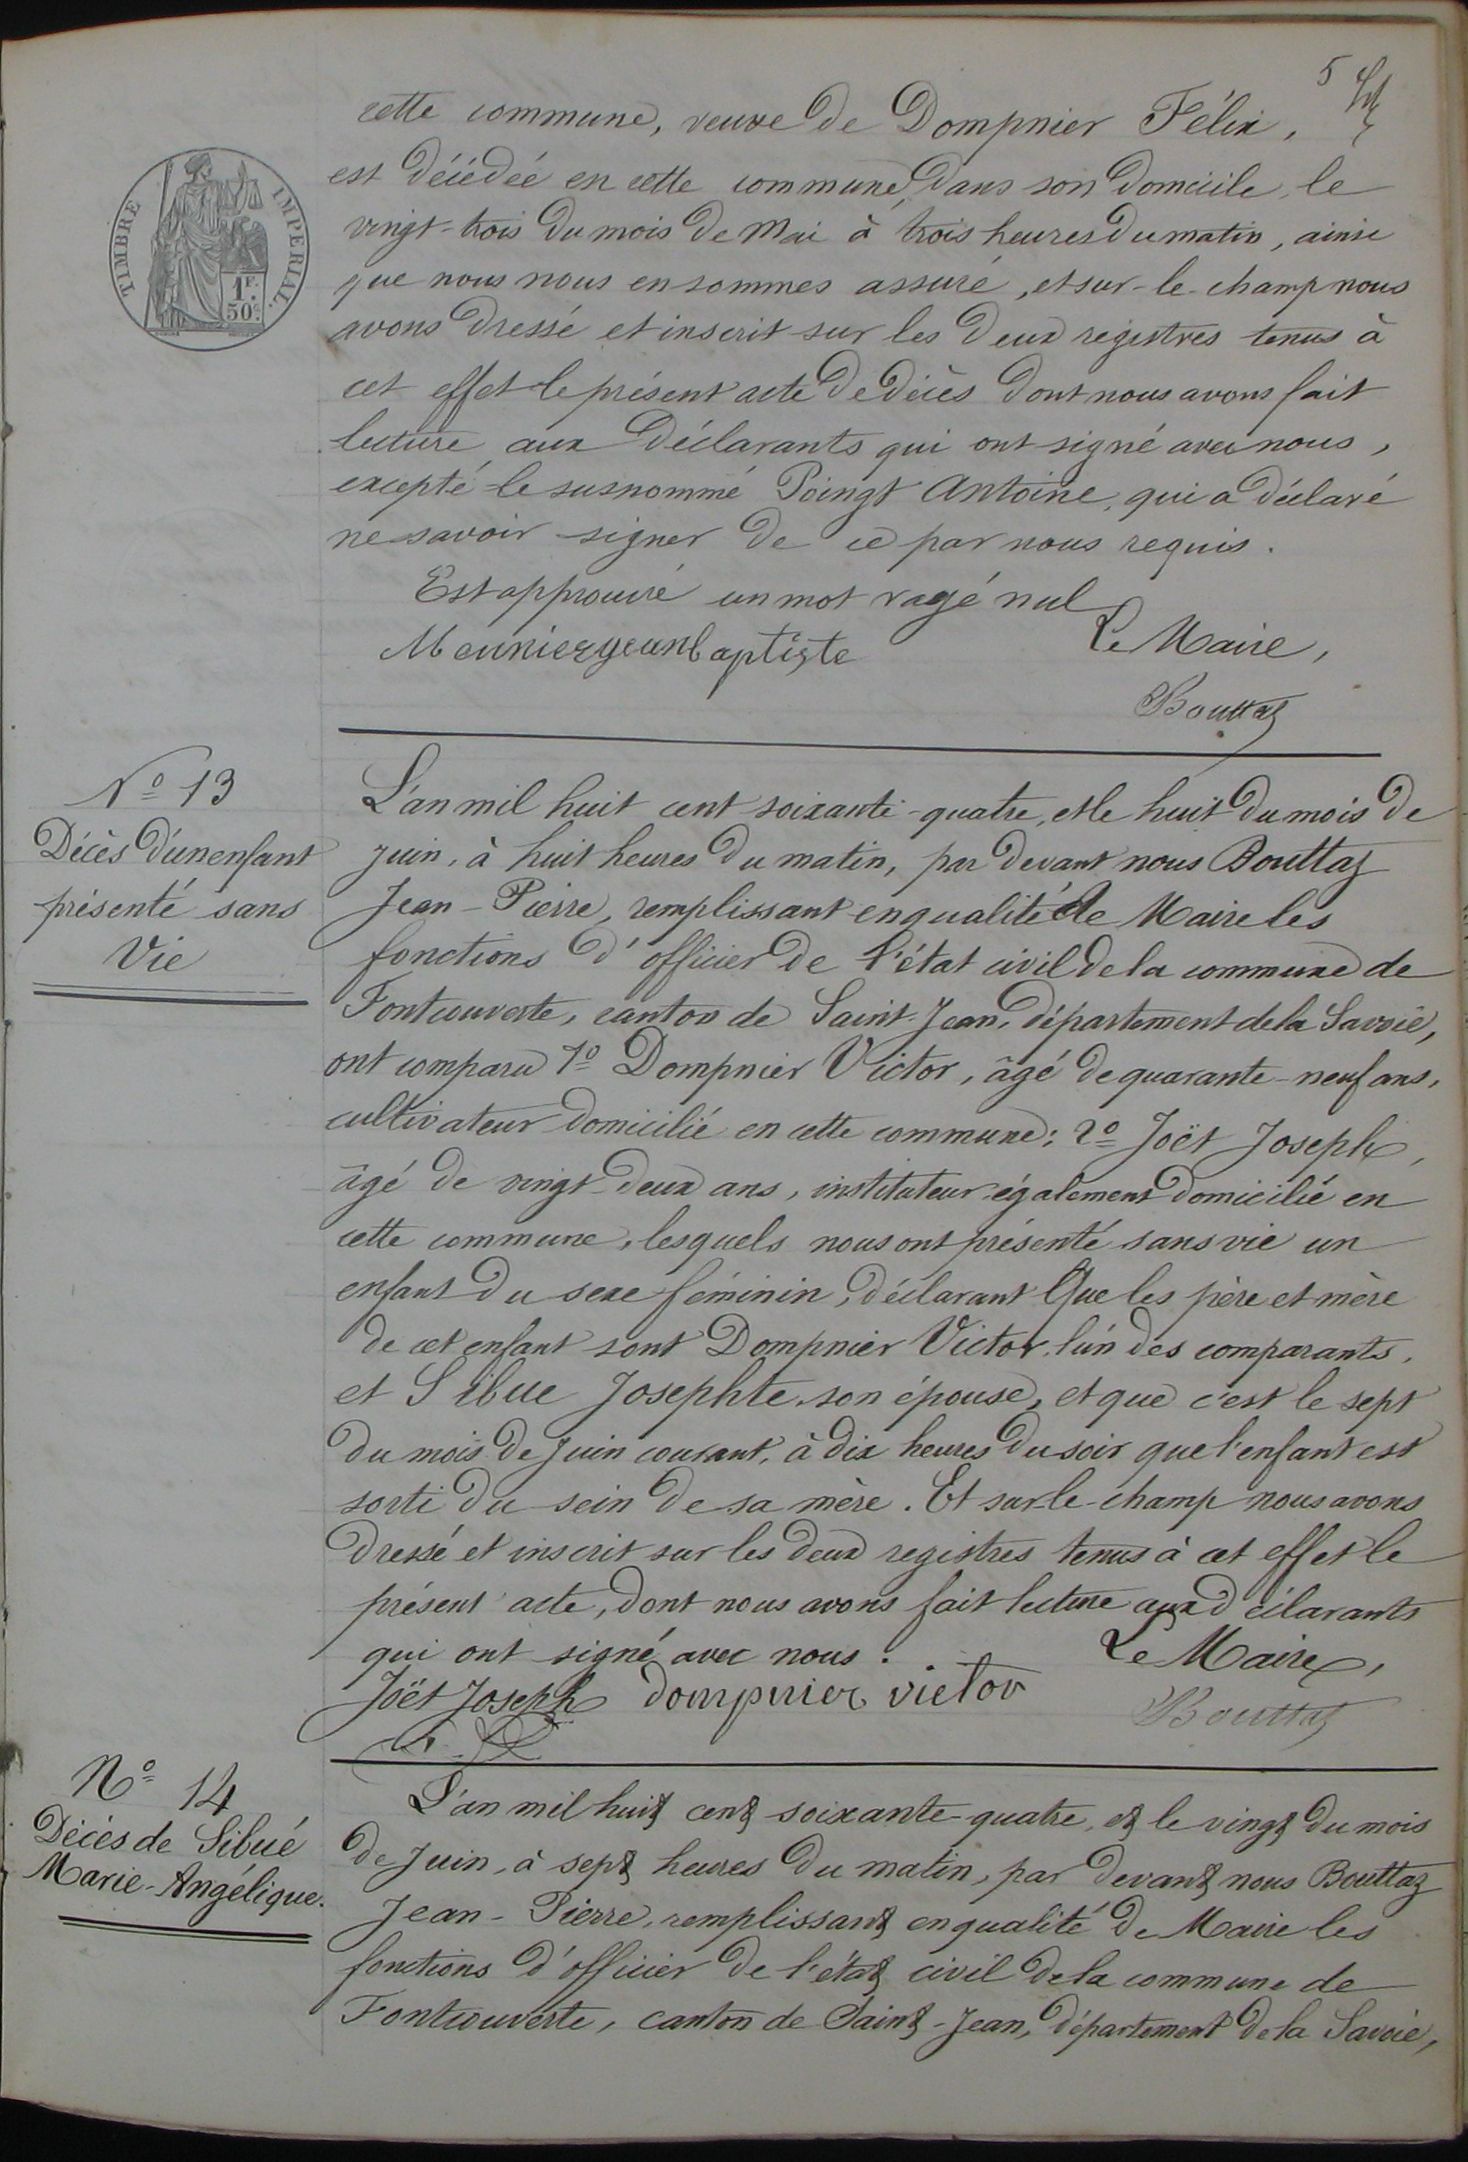 5
cette commune, veuve de Dompnier Félix,
est décédée en cette commune, dans son domicile, le
vingt-trois du mois de Mai à trois heures du matin, ainsi
que nous nous en sommes assuré, et sur-le-champ nous
avons dressé et inscrit sur les deux registres tenus à
cet effet le présent acte de décès dont nous avons fait
lecture aux déclarants qui ont signé avec nous,
excepté le susnommé Poingt Antoine, qui a déclaré
ne savoir signer de ce par nous requis.
Est approuvé un mot rayé nul
Le Maire,
Meunier jean baptiste
Bouttaz
TIMBRE IMPERIAL
1F.
50c.
No 13
Décès d'un enfant
présenté sans
Vie
L'an mil huit cent soixante-quatre, et le huit du mois de
Juin, à huit heures du matin, par devant nous Bouttaz
Jean-Pierre, remplissant en qualité de Maire les
fonctions d'officier de l'état civil de la commune de
Fontcouverte, canton de Saint-Jean, département de la Savoie,
ont comparu 1o Dompnier Victor, âgé de quarante-neuf ans,
cultivateur domicilié en cette commune; 2o Joët Joseph,
âgé de vingt-deux ans, instituteur également domicilié en
cette commune, lesquels nous ont présenté sans vie un
enfant du sexe féminin, déclarant que les père et mère
de cet enfant sont Dompnier Victor, l'un des comparants,
et Sibue Josephte son épouse, et que c'est le sept
du mois de Juin courant, à dix heures du soir que l'enfant est
sorti du sein de sa mère. Et sur-le-champ nous avons
dressé et inscrit sur les deux registres tenus à cet effet le
présent acte, dont nous avons fait lecture aux déclarants
qui ont signé avec nous.
Le Maire,
Joët Joseph dompnier victor
Bouttaz
No 14
Décès de Sibué
Marie-Angélique.
L'an mil huit cent soixante-quatre, et le vingt du mois
de Juin, à sept heures du matin, par devant nous Bouttaz
Jean-Pierre, remplissant en qualité de Maire les
fonctions d'officier de l'état civil de la commune de
Fontcouverte, canton de Saint-Jean, département de la Savoie,